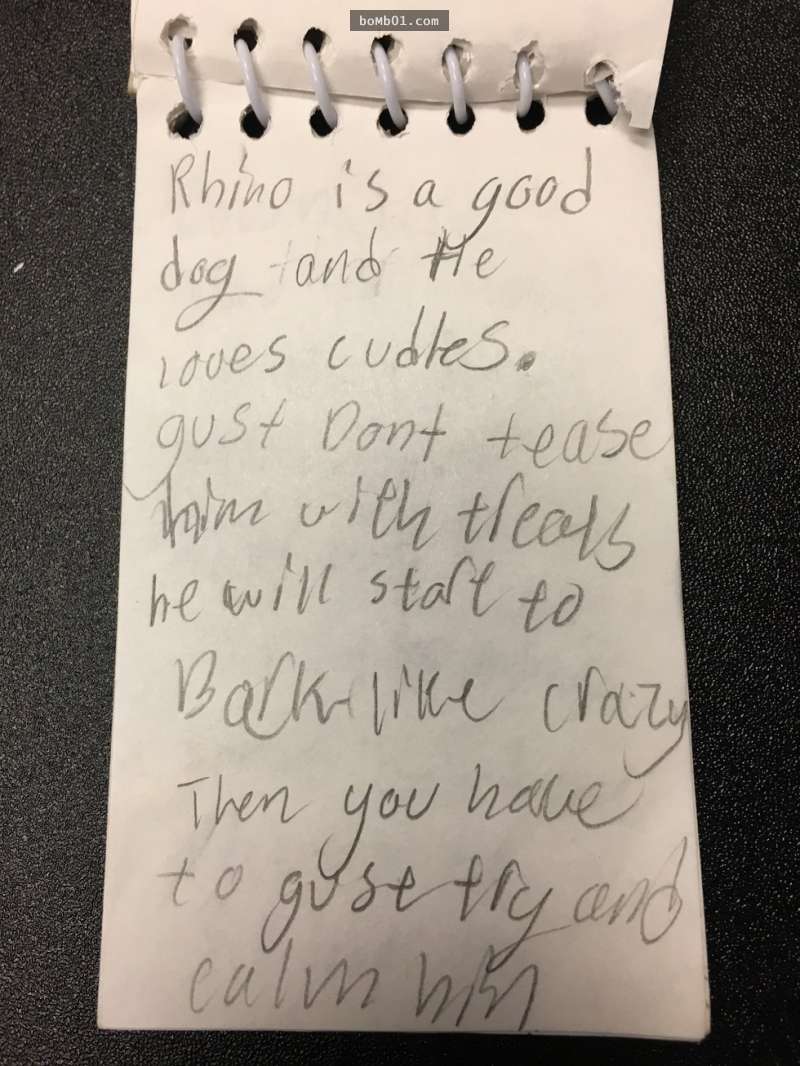 boMbO1.com
Rhino is a good
dog and He
loves cudles.
gust Dont tease
him with treats
he will start to
Bark like crazy
Then you have
to guste try and
calm him